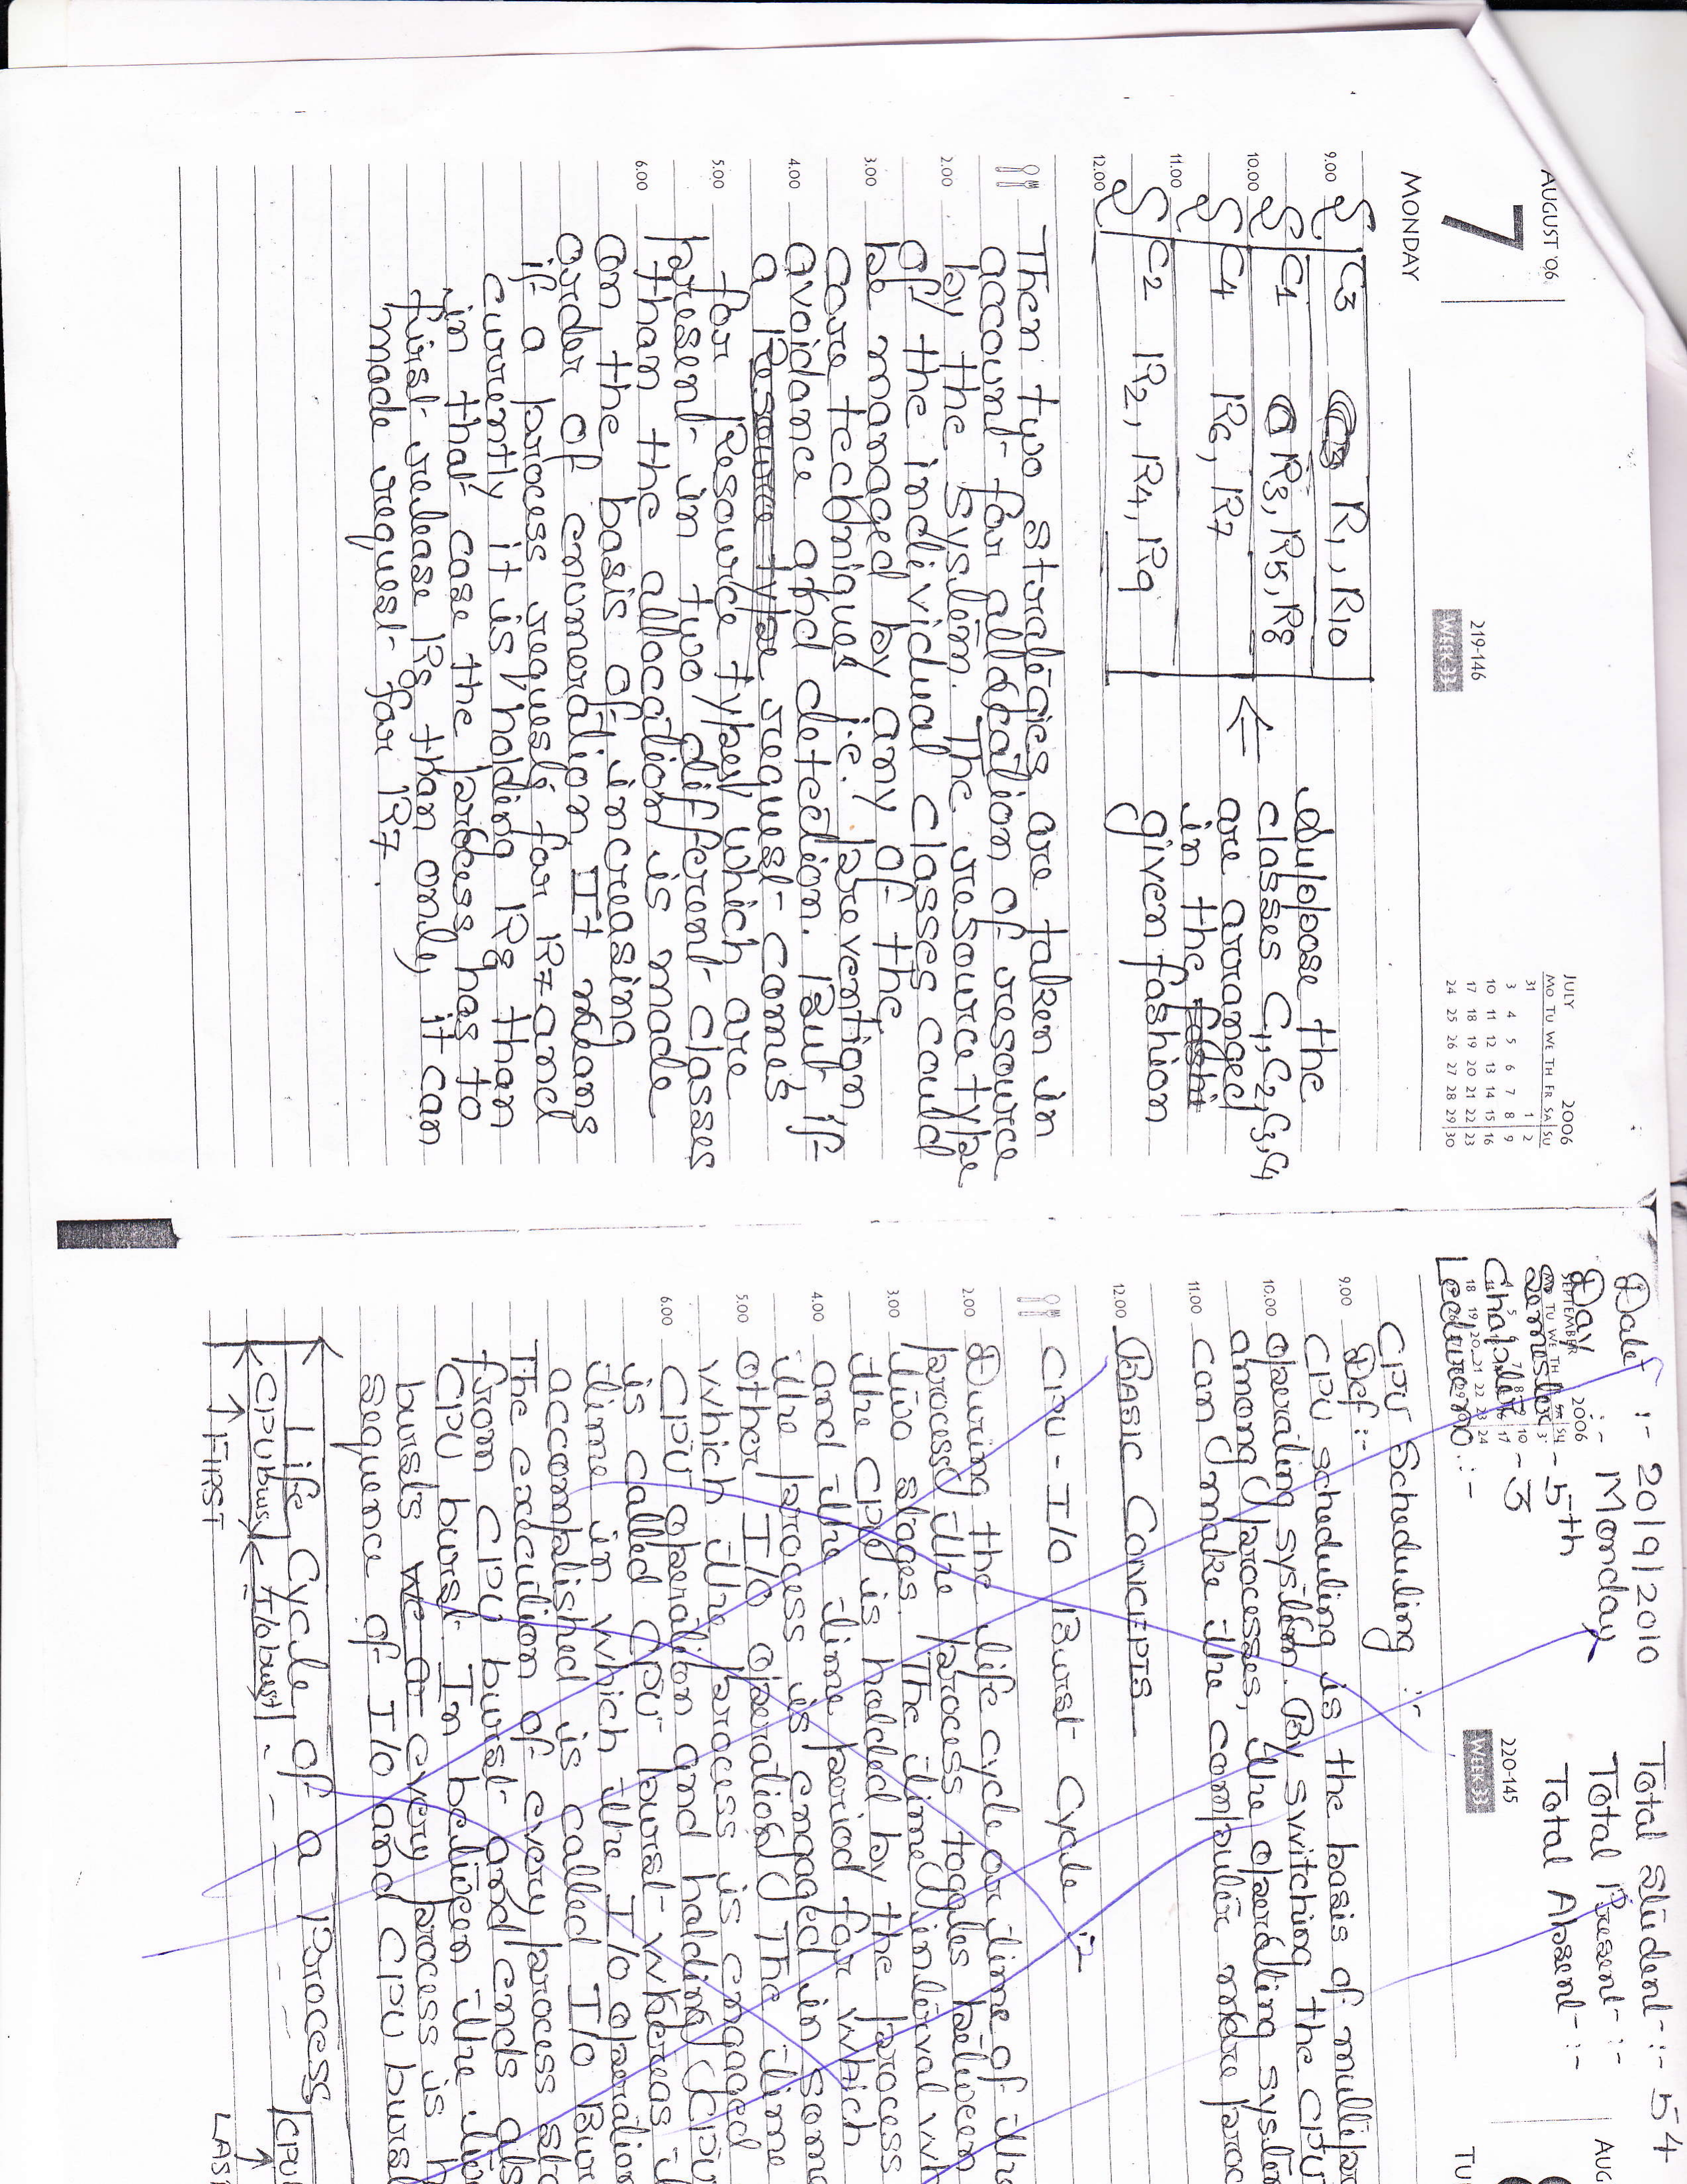 AUGUST '06
7
MONDAY
219-146
WEEK 33
JULY 2006
MO TU WE TH FR SA SU
31 1 2
3 4 5 6 7 8 9
10 11 12 13 14 15 16
17 18 19 20 21 22 23
24 25 26 27 28 29 30
9.00 C3 R1, R10
10.00 C1 R3, R5, R8
11.00 C4 R6, R7
12.00 C2 R2, R4, R9
← Suppose the
classes C1, C2, C3, C4
are arranged
in the fashi
given fashion
Then two strategies are taken in
account for allocation of resource
2.00 by the system. The resource type
of the individual classes could
3.00 be managed by any of the
core techniques i.e. prevention,
4.00 avoidance and detection. But if
a Resource type request comes
5.00 for Resource types which are
present in two different classes
6.00 than the allocation is made
on the basis of increasing
order of enumeration. It means
if a process requests for R7 and
currently it is holding R8 than
in that case the process has to
first release R8 than only, it can
made request for R7.
Date :- 20/9/2010 Total Student :- 54
Day :- Monday Total Present :-
Semister - 5th Total Absent :-
Chapter - 3
Lecture no :-
SEPTEMBER 2006
220-145
WEEK 33
AUG
TU
CPU Scheduling :-
9.00 Def :-
CPU scheduling is the basis of
10.00 operating system. By switching the CPU
among processes, the operating
11.00 can make the computer more
12.00 BASIC CONCEPTS
CPU - I/O Burst Cycle :-
2.00 During the life cycle or time of the
process the process toggles between
3.00 two stages. The time interval
the CPU is holded by the process
4.00 and the time period for which
the process is engaged in some
5.00 other I/O operation. The time
which the process is engaged
6.00 CPU operation and holding CPU
is called CPU burst whereas
time in which the I/O operation
accomplished is called I/O
The execution of every process
from CPU burst and ends
CPU burst. In between the
bursts every process is
sequence of I/O and CPU
Life Cycle of a Process
CPU burst I/O burst - - - - CPU
→ FIRST